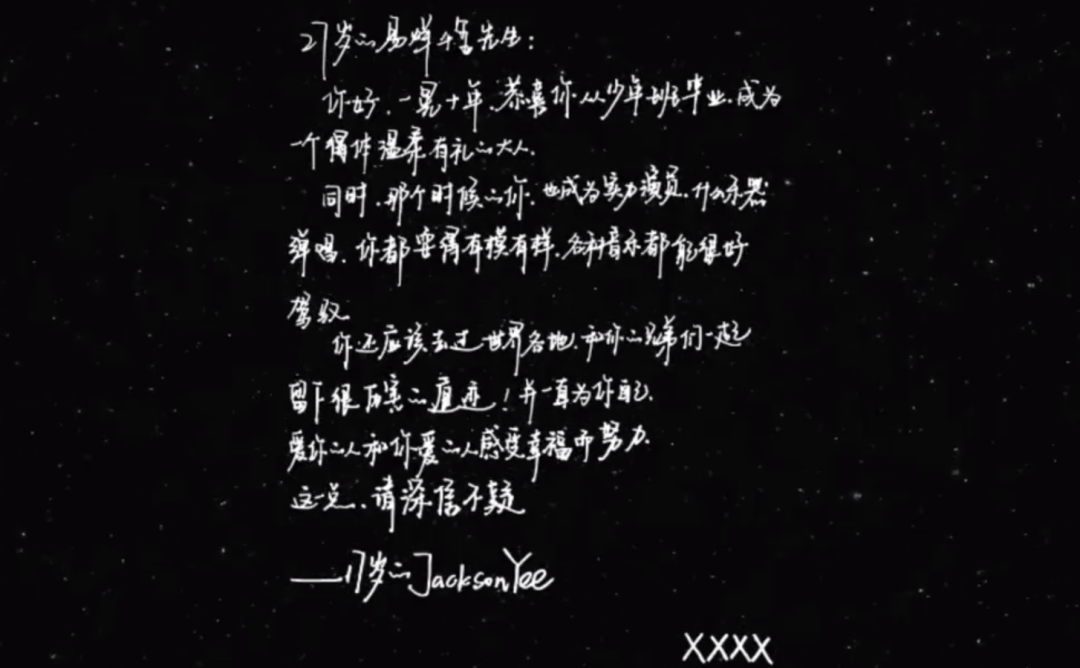 27岁的易烊千玺先生：
你好，一晃十年，恭喜你从少年班毕业，成为
一个得体温柔有礼的大人。
同时，那个时候的你，也成为实力演员，什么乐器
弹唱，你都耍得有模有样，各种音乐都能很好
驾驭
你还应该去过世界各地，和你的兄弟们一起
留下很厉害的痕迹！并一直为你自己，
爱你的人和你爱的人感受幸福而努力，
这一点，请深信不疑
——17岁的JacksonYee
XXXX